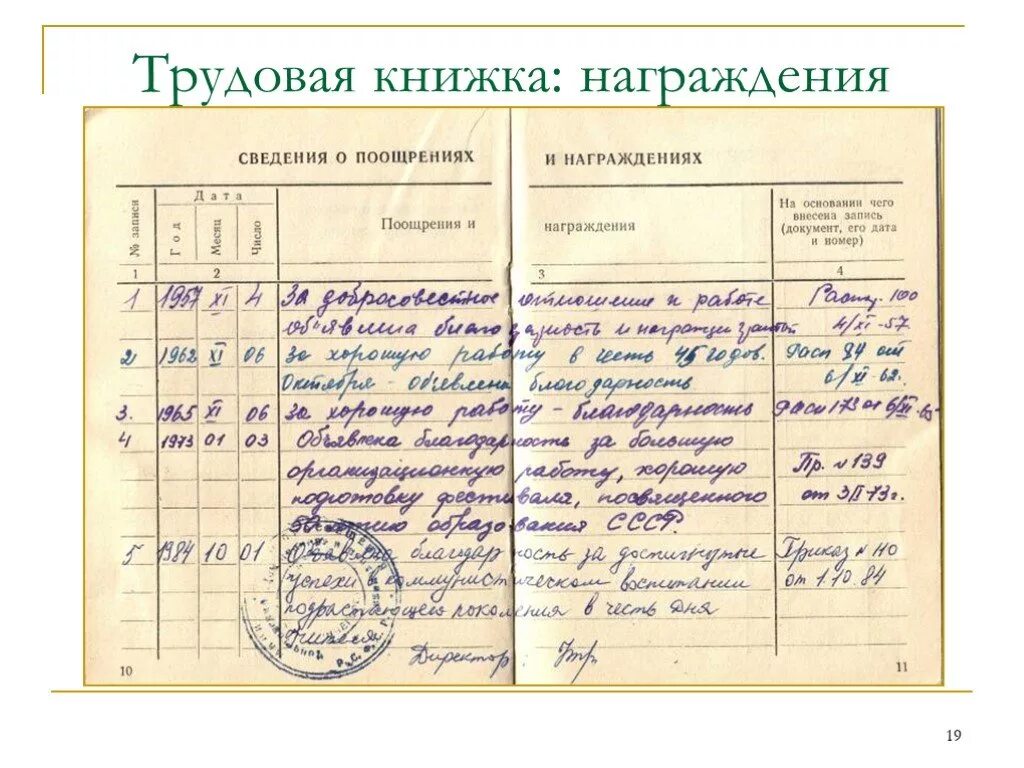 Трудовая книжка: награждения
СВЕДЕНИЯ О ПООЩРЕНИЯХ И НАГРАЖДЕНИЯХ
№ записи Дата Поощрения и награждения На основании чего внесена запись (документ, его дата и номер)
Год Месяц Число
1 2 3 4
1 1957 XI 4 За добросовестное отношение к работе
объявлена благодарность и 4/XI-57.
2 1962 XI 06 За хорошую работу в честь 45 годов. Расп 94 от
Октября - объявлена благодарность 6/XI-62.
3. 1965 XI 06 За хорошую работу - благодарность Расп 173 от 6/XI-65
4 1973 01 03 Объявлена благодарность за большую
организационную работу, хорошую Пр. №139
подготовку фестиваля, посвященного от 3/II-73г.
50-летию образования СССР
5 1984 10 01 Объявлена благодарность за достигнутые Приказ №110
успехи в коммунистическом воспитании от 1.10.84
подрастающего поколения в честь Дня
Учителя
Директор
10 11
19